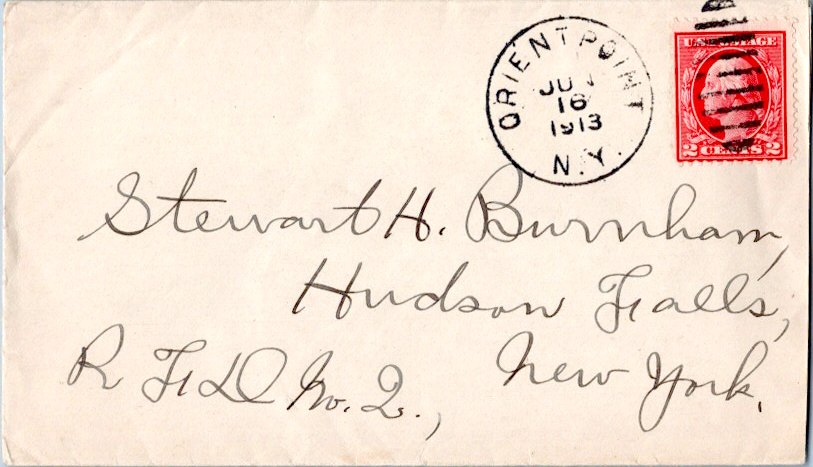 ORIENT POINT
JUN
16
1913
N.Y.
U.S. POSTAGE
2 CENTS 2
Stewart H. Burnham,
Hudson Falls,
New York.
R F D No. 2.,